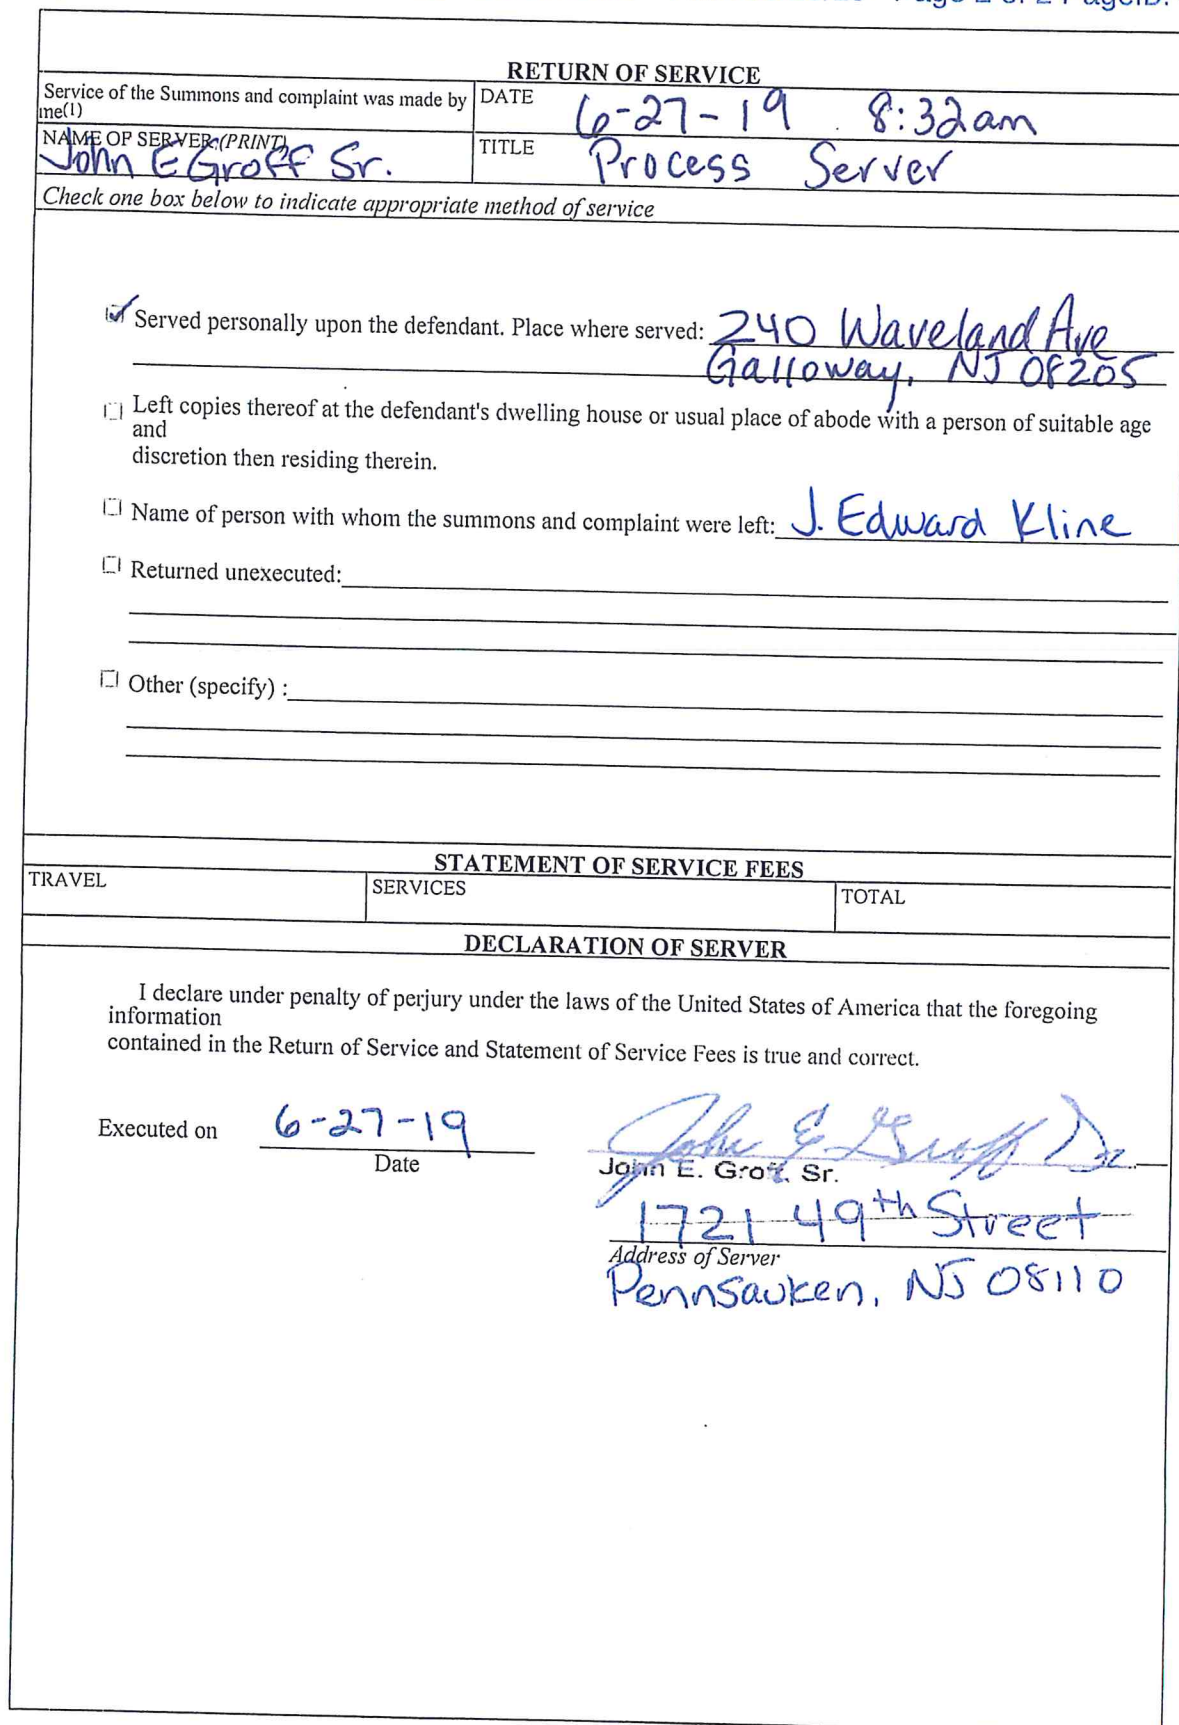 Page 2 of 2 PageID:
RETURN OF SERVICE
Service of the Summons and complaint was made by me(1)
DATE 6-27-19 8:32am
NAME OF SERVER (PRINT) John E Groff Sr.
TITLE Process Server
Check one box below to indicate appropriate method of service
Served personally upon the defendant. Place where served: 240 Waveland Ave
Galloway, NJ 08205
Left copies thereof at the defendant's dwelling house or usual place of abode with a person of suitable age
and
discretion then residing therein.
Name of person with whom the summons and complaint were left: J. Edward Kline
Returned unexecuted:
Other (specify) :
STATEMENT OF SERVICE FEES
TRAVEL SERVICES TOTAL
DECLARATION OF SERVER
I declare under penalty of perjury under the laws of the United States of America that the foregoing
information
contained in the Return of Service and Statement of Service Fees is true and correct.
Executed on 6-27-19
Date
John E Groff Sr.
John E. Groff, Sr.
1721 49th Street
Address of Server
Pennsauken, NJ 08110